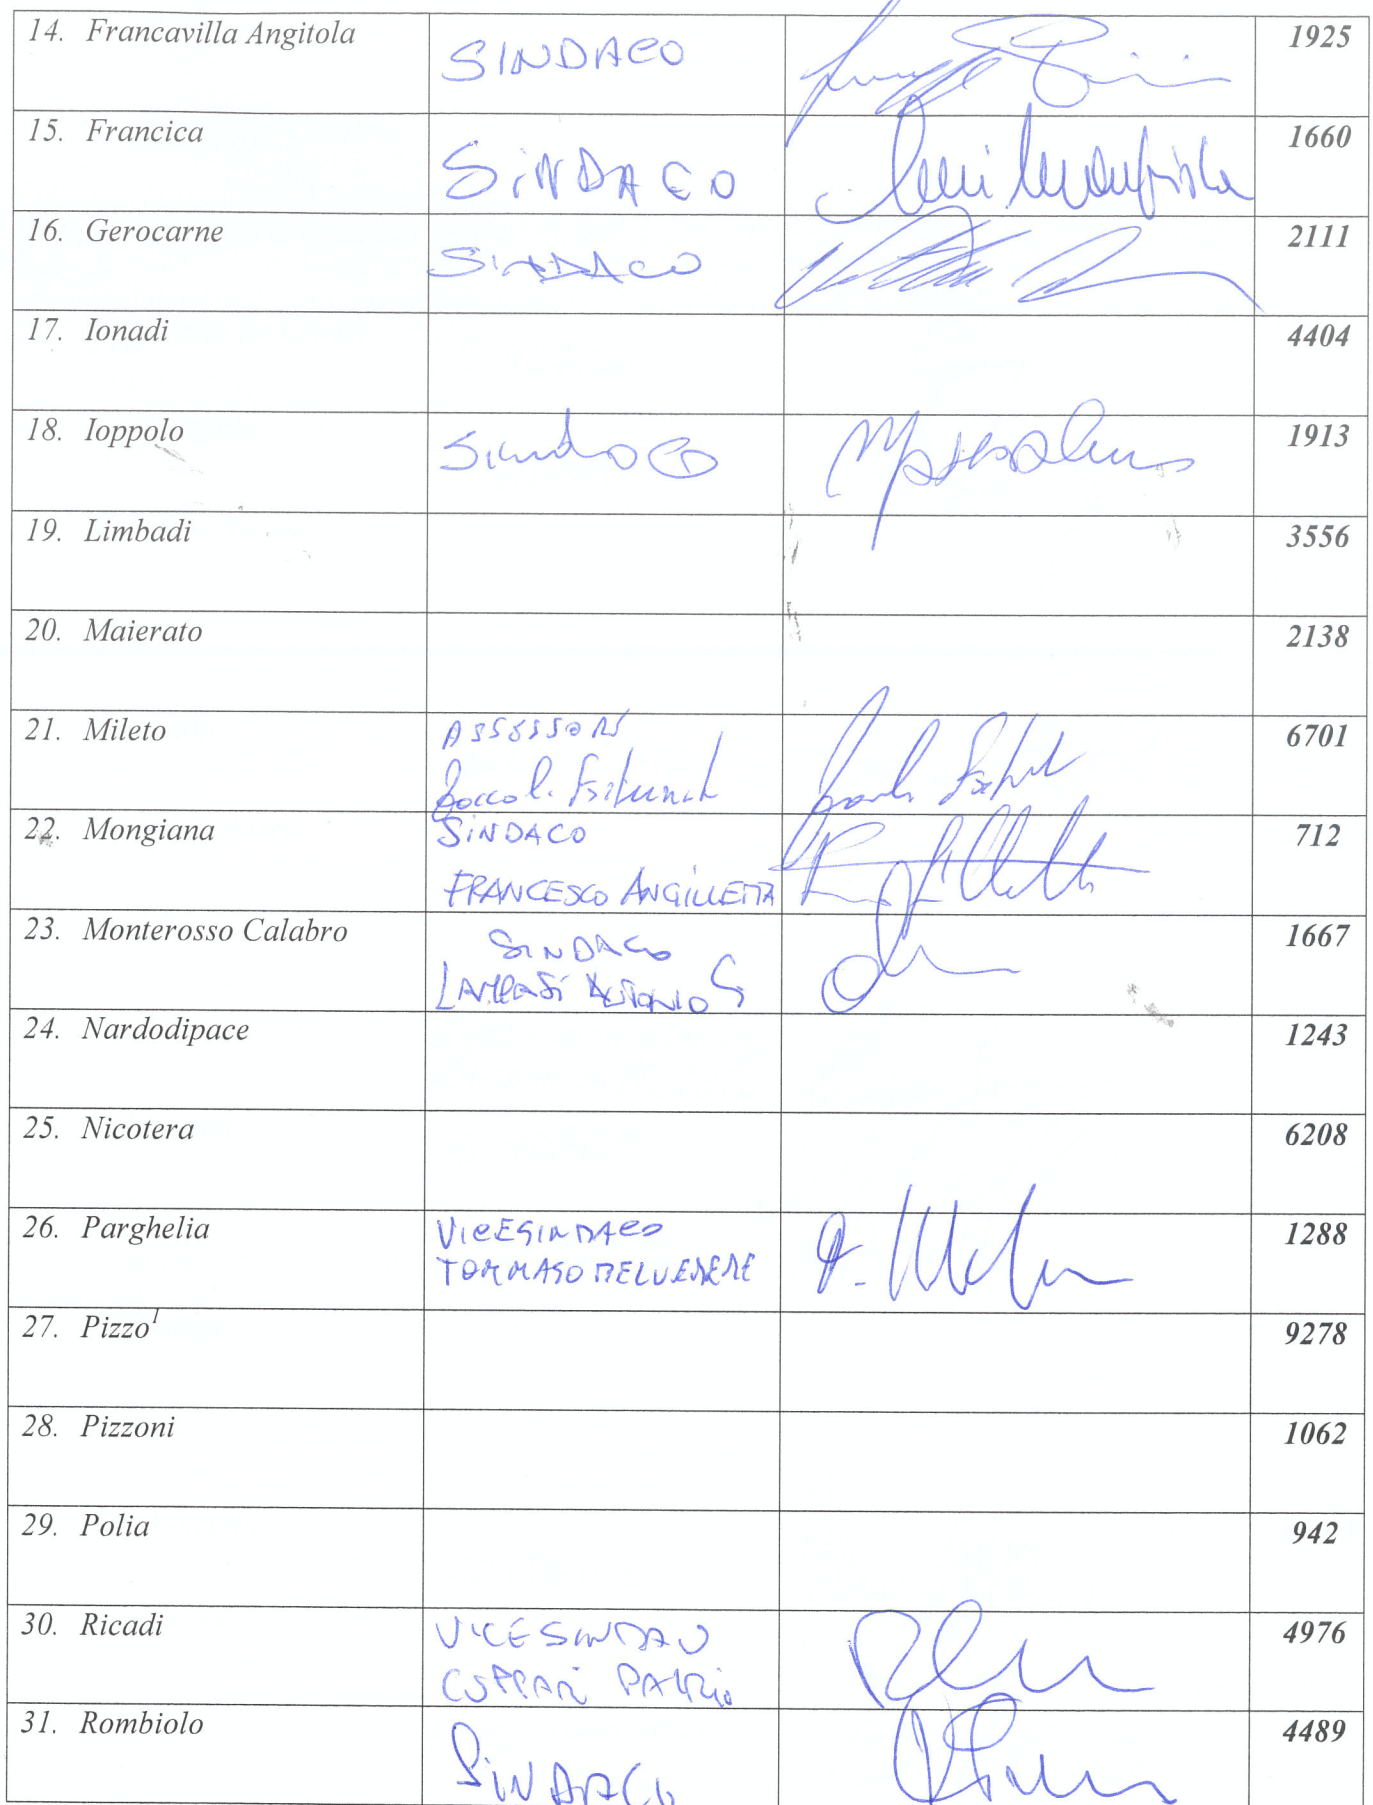 14. Francavilla Angitola SINDACO 1925
15. Francica SINDACO 1660
16. Gerocarne SINDACO 2111
17. Ionadi 4404
18. Ioppolo Sindaco 1913
19. Limbadi 3556
20. Maierato 2138
21. Mileto ASSESSORE 6701
Rocco
22. Mongiana SINDACO 712
FRANCESCO ANGILLETTA
23. Monterosso Calabro SINDACO 1667
ANTONIO G
24. Nardodipace 1243
25. Nicotera 6208
26. Parghelia VICESINDACO 1288
TOMMASO BELVEDERE
27. Pizzo1 9278
28. Pizzoni 1062
29. Polia 942
30. Ricadi VICESINDACO 4976
31. Rombiolo SINDACO 4489